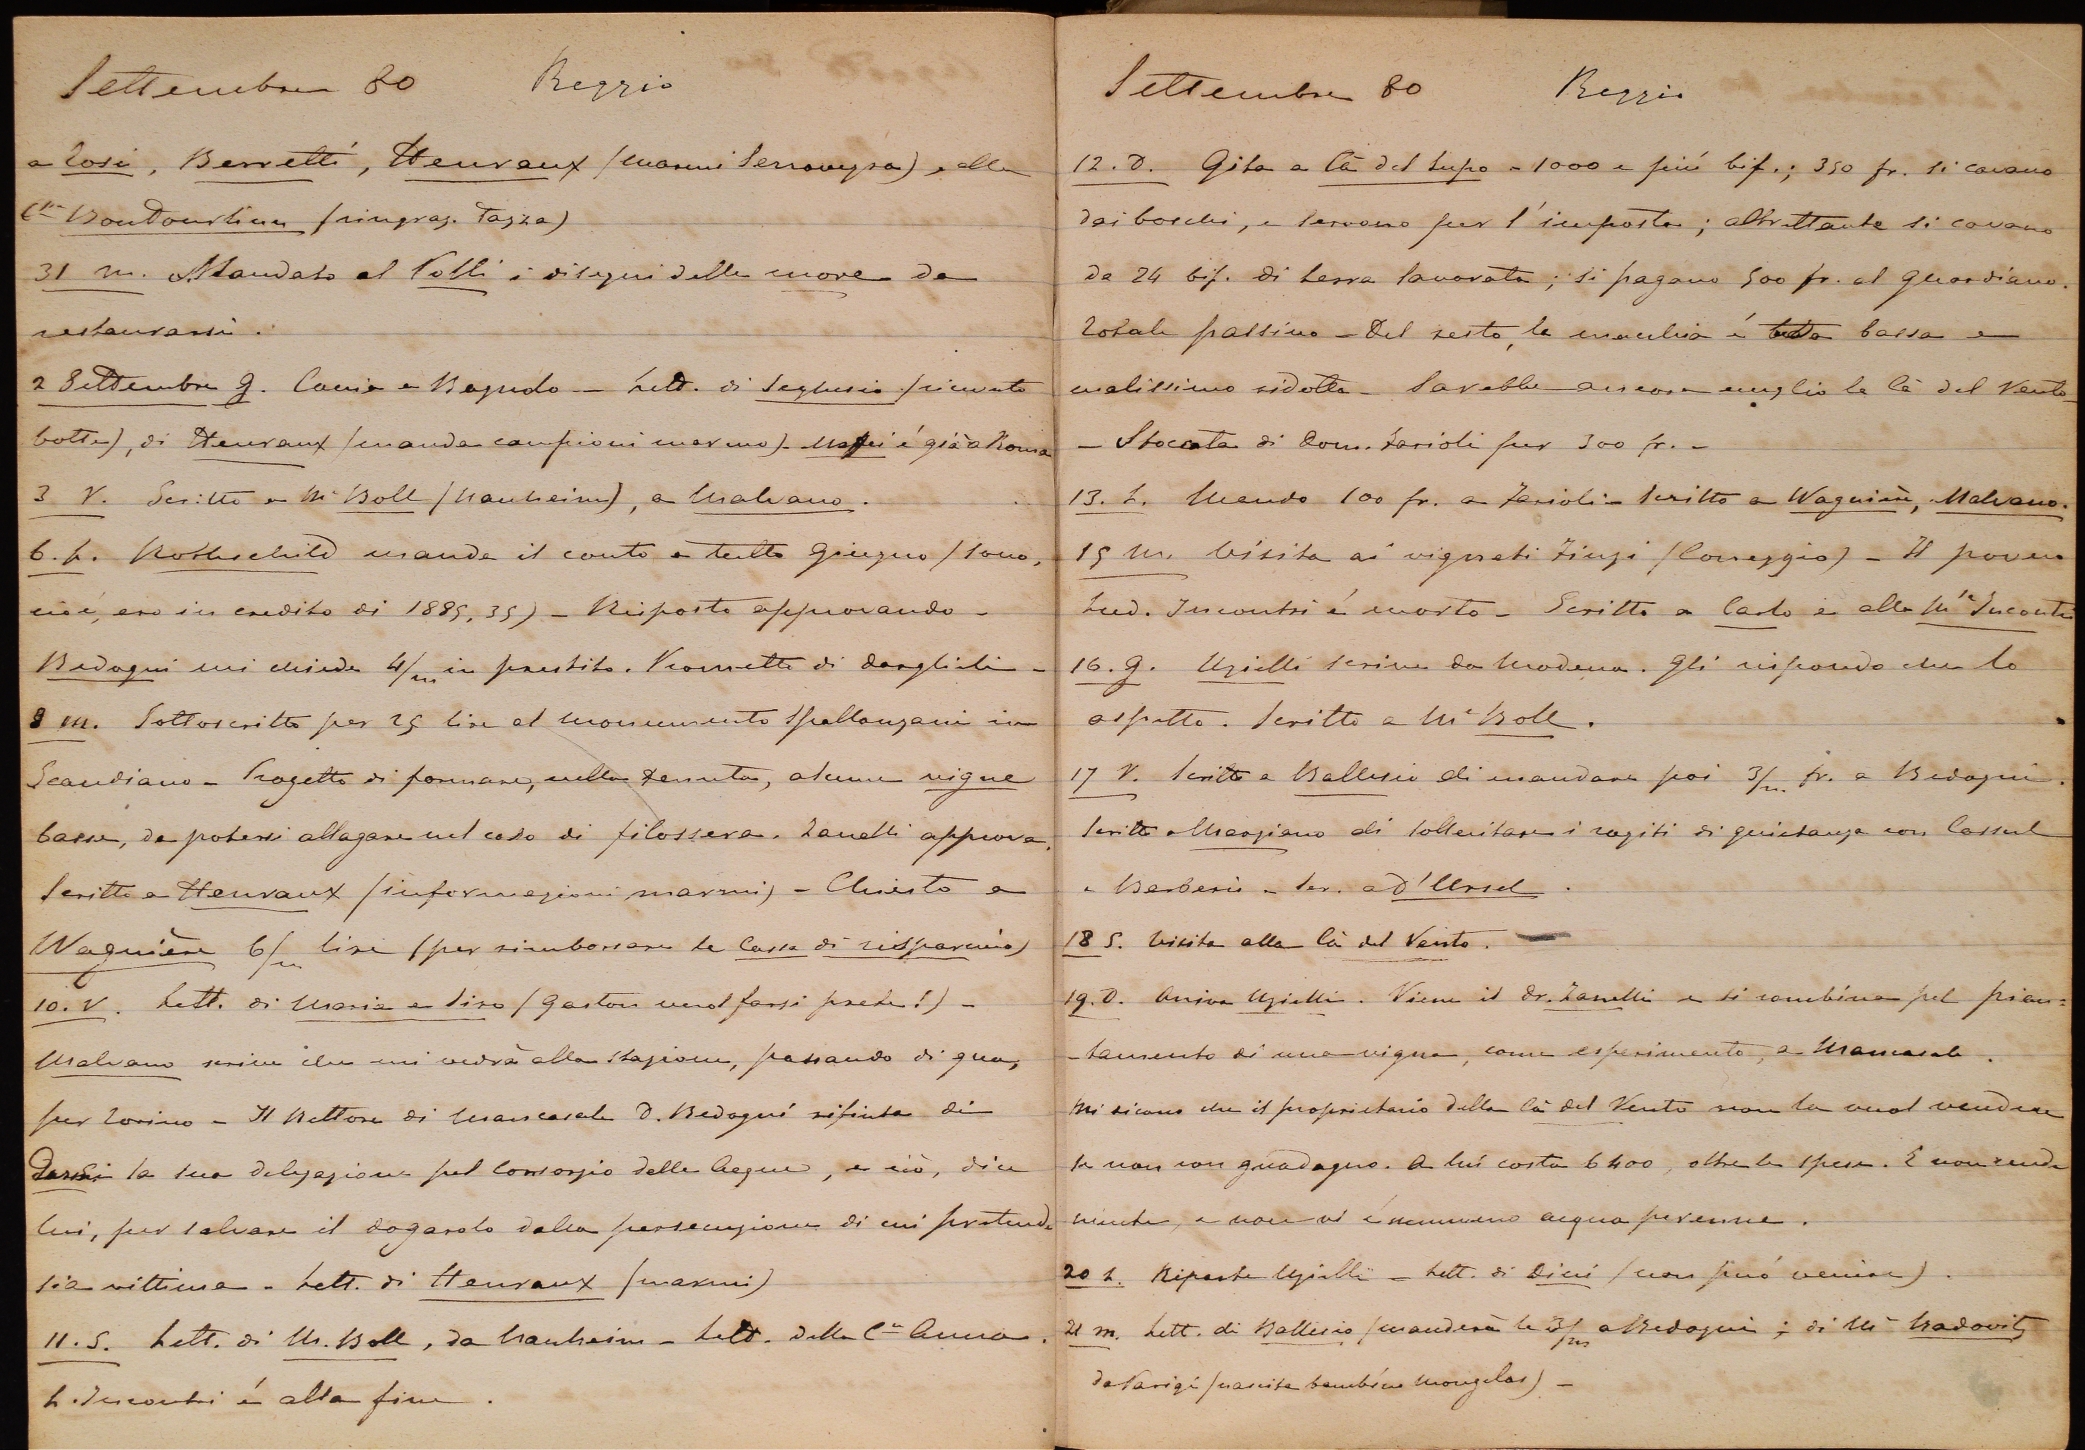 Settembre 80 Reggio
a Tosi, Berretti, Henraux (marmi Serravezza) e alla
C.sa Boutourline (ringraz. Tazza)
31 m. Mandato al Volli i disegni delle more da
restaurarsi.
2 Settembre G. Caccia a Bagnolo – Lett. di Seghesio (ricevuto
botte), di Henraux (manda campioni marmo) – è già a Roma
3 V. Scritto a Mr Boll (Nauheim), a Malvano.
6. L. Rothschild manda il conto a tutto Giugno (sono,
cioè, ero in credito di 1885,35) – Risposto approvando –
Bedogni mi chiede 4/m in prestito. Prometto di darglieli –
8 m. Sottoscritto per 25 lire al monumento Spallanzani in
Scandiano – Progetto di formare, nella tenuta, alcune vigne
basse, da potersi allagare nel caso di filossera. Zanelli approva.
Scritto a Henraux (informazioni marmi) – Chiesto a
Wagnière 6/m lire (per rimborsare la Cassa di risparmio)
10. V. Lett. di Maria e Siro (Gaston vuol farsi prete!) –
Malvano scrive che mi vedrà alla stazione, passando di qua,
per Torino – Il Rettore di Mancasale D. Bedogni rifiuta di
darmi la sua delegazione pel Consorzio delle Acque, e ciò, dice
lui, per salvare il dogarolo dalla persecuzione di cui pretende
sia vittima – Lett. di Henraux (marmi)
11. S. Lett. di M. Boll, da Nauheim – Lett. della C.sa Anna.
L. Incontri è alla fine.
Settembre 80 Reggio
12. D. Gita a Cà del Lupo – 1000 e più bif.; 350 fr. si cavano
dai boschi, e servono per l'imposta; altrettante si cavano
da 24 bif. di terra lavorata; si pagano 500 fr. al guardiano.
Totale passivo – Del resto, la macchia è tutta bassa e
malissimo ridotta – Sarebbe ancora meglio la Cà del Vento –
– Stoccata di Dom. Farioli per 300 fr. –
13. L. Mando 100 fr. a Farioli – Scritto a Wagnière, Malvano.
15 M. Visita ai vigneti Finzi (Correggio) – Il povero
Lud. Incontri è morto – Scritto a Carlo e alla M.sa Incontri
16. G. Uzielli scrive da Modena. Gli rispondo che lo
aspetto. Scritto a Mr Boll.
17 V. Scritto a Ballesio di mandare poi 3/m fr. a Bedogni.
Scritto a Marziano di sollecitare i rogiti di quietanza con Cassel
e Barberis – Scr. a D'Ursel.
18 S. Visita alla Cà del Vento. –
19. D. Arriva Uzielli. Viene il Dr. Zanelli e si combina pel pian=
-tamento di una vigna, come esperimento, a Mancasale.
Mi dicono che il proprietario della Cà del Vento non la vuol vendere
se non con guadagno. A lui costa 6400, oltre le spese. E non rende
niente, e non vi è nemmeno acqua perenne.
20 L. Riparte Uzielli – Lett. di Dini (non può venire).
21 m. Lett. di Ballesio (manderà le 3/m a Bedogni; di Mr Nadovitz
da Parigi (nascita bambino Mongelas) –